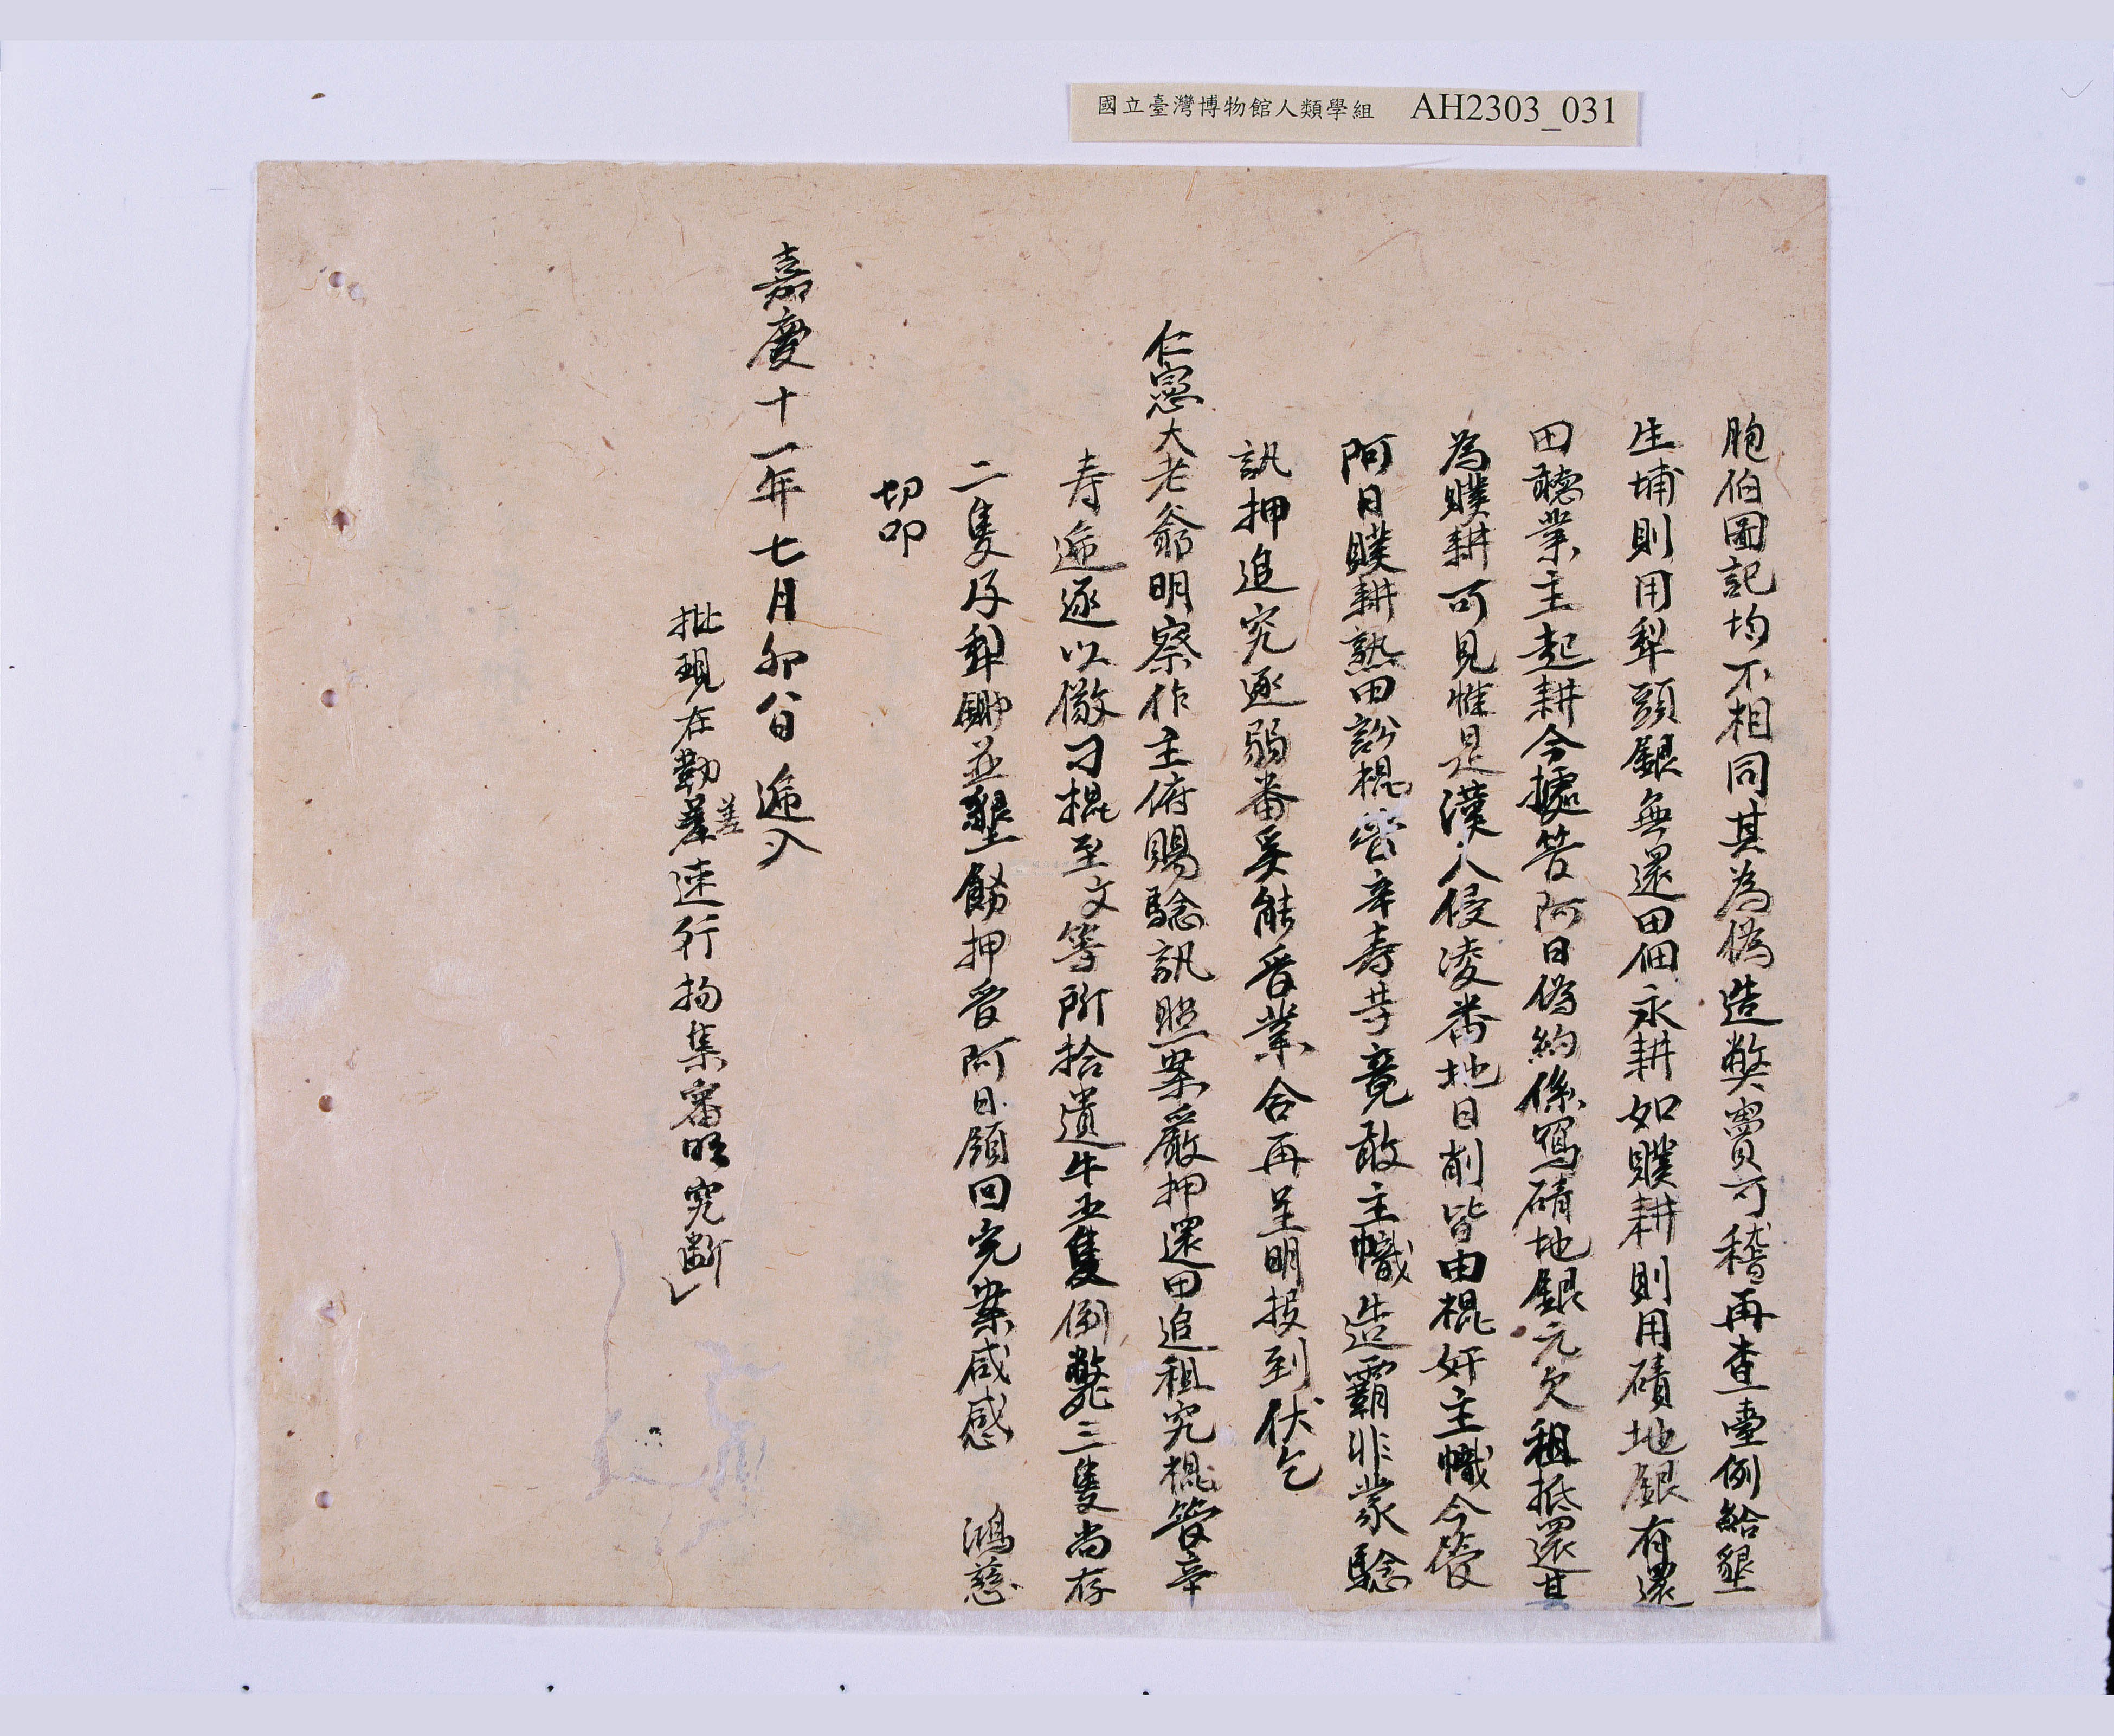 國立臺灣博物館人類學組 AH2303_031
胞伯圖記均不相同其為偽造弊竇可稽再查臺例給墾
生埔則用犁頭銀無還田佃永耕如贌耕則用磧地銀有還
田聽業主起耕今據答阿日偽約係寫磧地銀元欠租抵還其
為贌耕可見惟是漢人侵凌番地日削皆由棍奸主幟今復
阿日贌耕熟田訟棍管辛壽等竟敢主幟造霸非蒙驗
訊押追究逐弱番奚能管業合再呈明投到伏乞
仁憲大老爺明察作主俯賜驗訊照案嚴押還田追租究棍管辛
寿遞逐以儆刁棍至文等所拾遺牛五隻倒斃三隻尚存
二隻及犁鋤並墾飭押管阿日領回完案咸感 鴻慈
切叩
嘉慶十一年七月卯八日 遞入
批現在勒差速行拘集審明究斷
差